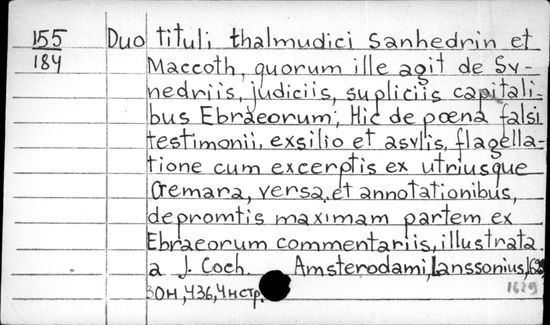 155
184
Duo tituli thalmudici Sanhedrin et
Maccoth, quorum ille agit de Sy-
nedriis, judiciis, supliciis capitali-
bus Ebraeorum; Hic de poena falsi
testimonii, exsilio et asylis, flagella-
tione cum excerptis ex utriusque
Gemara, versa et annotationibus,
depromtis maximam partem ex
Ebraeorum commentariis, illustrata
a J. Coch. Amsterodami, Lanssonius,
1629
436, 4 нстр.